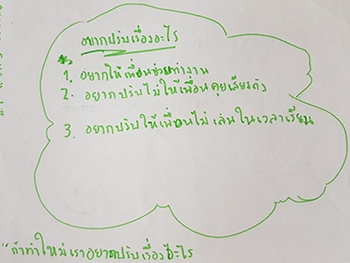 อยากปรับเรื่องอะไร
1. อยากให้เพื่อนช่วยทำงาน
2. อยากปรับไม่ให้เพื่อนคุยเสียงดัง
3. อยากปรับให้เพื่อนไม่เล่นในเวลาเรียน
"ถ้าทำใหม่เราอยากปรับเรื่องอะไร